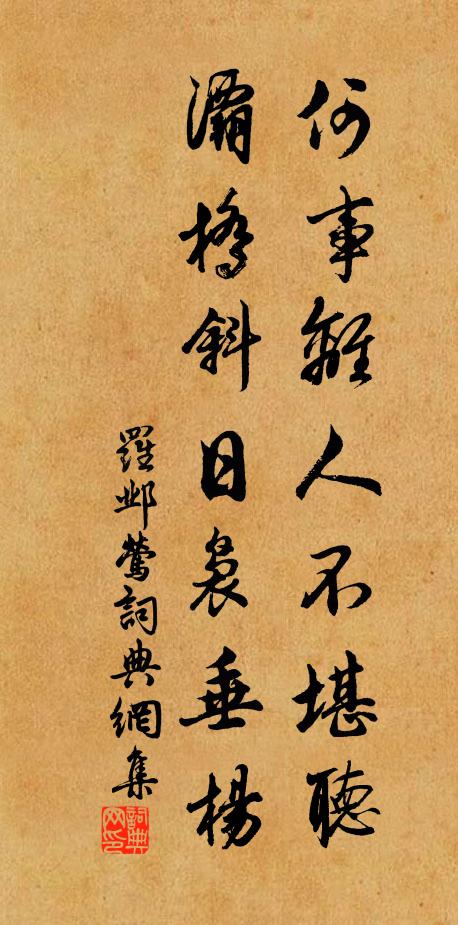 何事離人不堪聽
灞橋斜日裊垂楊
羅鄴鶯詞典網集
詞典网印